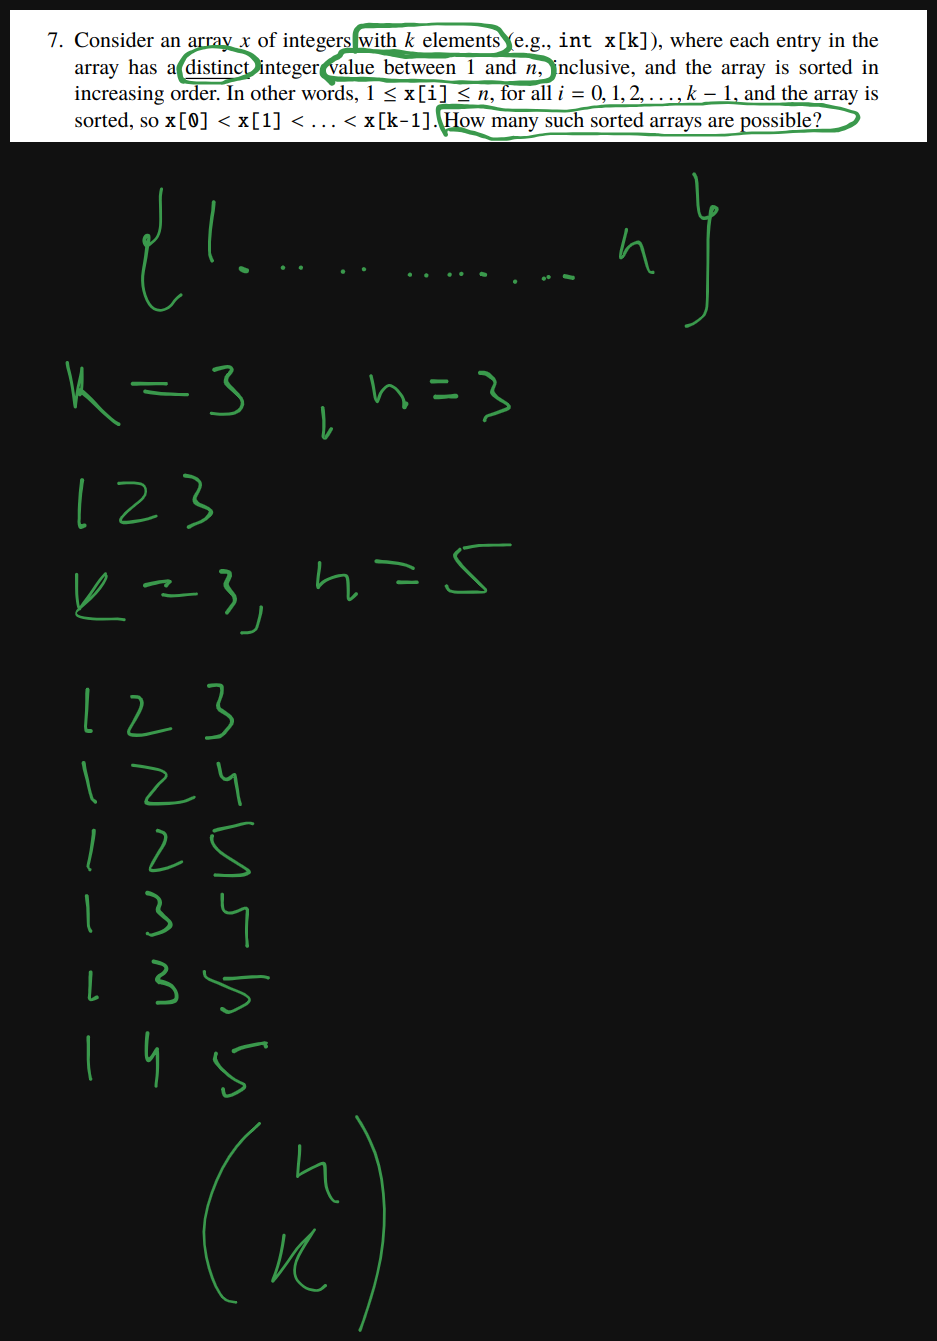 7. Consider an array x of integers with k elements (e.g., int x[k]), where each entry in the
array has a distinct integer value between 1 and n, inclusive, and the array is sorted in
increasing order. In other words, 1 ≤ x[i] ≤ n, for all i = 0, 1, 2, . . . , k − 1, and the array is
sorted, so x[0] < x[1] < . . . < x[k-1]. How many such sorted arrays are possible?
{ 1 . . . . . . . . . . . . . . n }
K = 3 , n = 3
1 2 3
K = 3, n = 5
1 2 3
1 2 4
1 2 5
1 3 4
1 3 5
1 4 5
( n
K )